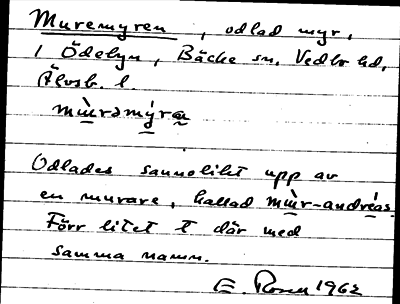 Muremyren, odlad myr,
i Ödebyn, Bäcke sn. Vedbo hd,
Älvsb. l.
mùrəmýra
Odlades sannolikt upp av
en murare, kallad mùr-andréas.
Förr litet t där med
samma namn.
E. Rosen 1962